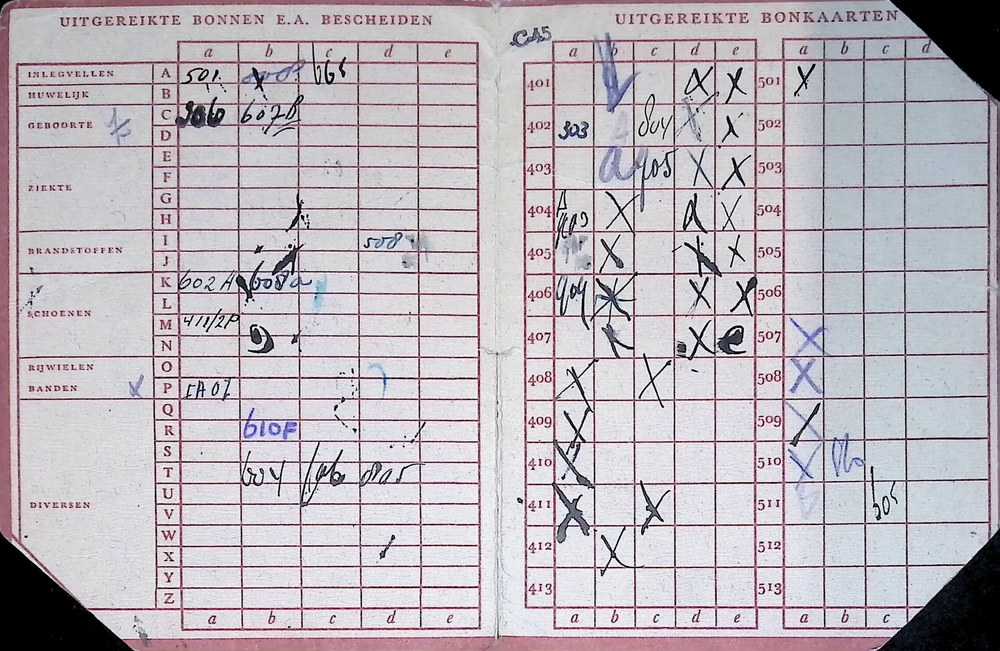 UITGEREIKTE BONNEN E.A. BESCHEIDEN
a b c d e
INLEGVELLEN A 501.
HUWELIJK B
C 607B
GEBOORTE D
E
ZIEKTE F
G
H
I 508
BRANDSTOFFEN J
K 602 A 608a
L
SCHOENEN M 411/2P
N
RIJWIELEN O
BANDEN P
Q
R 610F
S
T 604
U
DIVERSEN V
W
X
Y
Z
a b c d e
UITGEREIKTE BONKAARTEN
C45
a b c d e a b c d
401 X X 501 X
402 303 804 X X 502
403 905 X X 503
404 X X 504
405 X X X 505
406 X X X 506
407 X X 507 X
408 X X 508 X
409 X 509 X
410 X 510 X
411 X X 511 605
412 X 512
413 513
a b c d e a b c